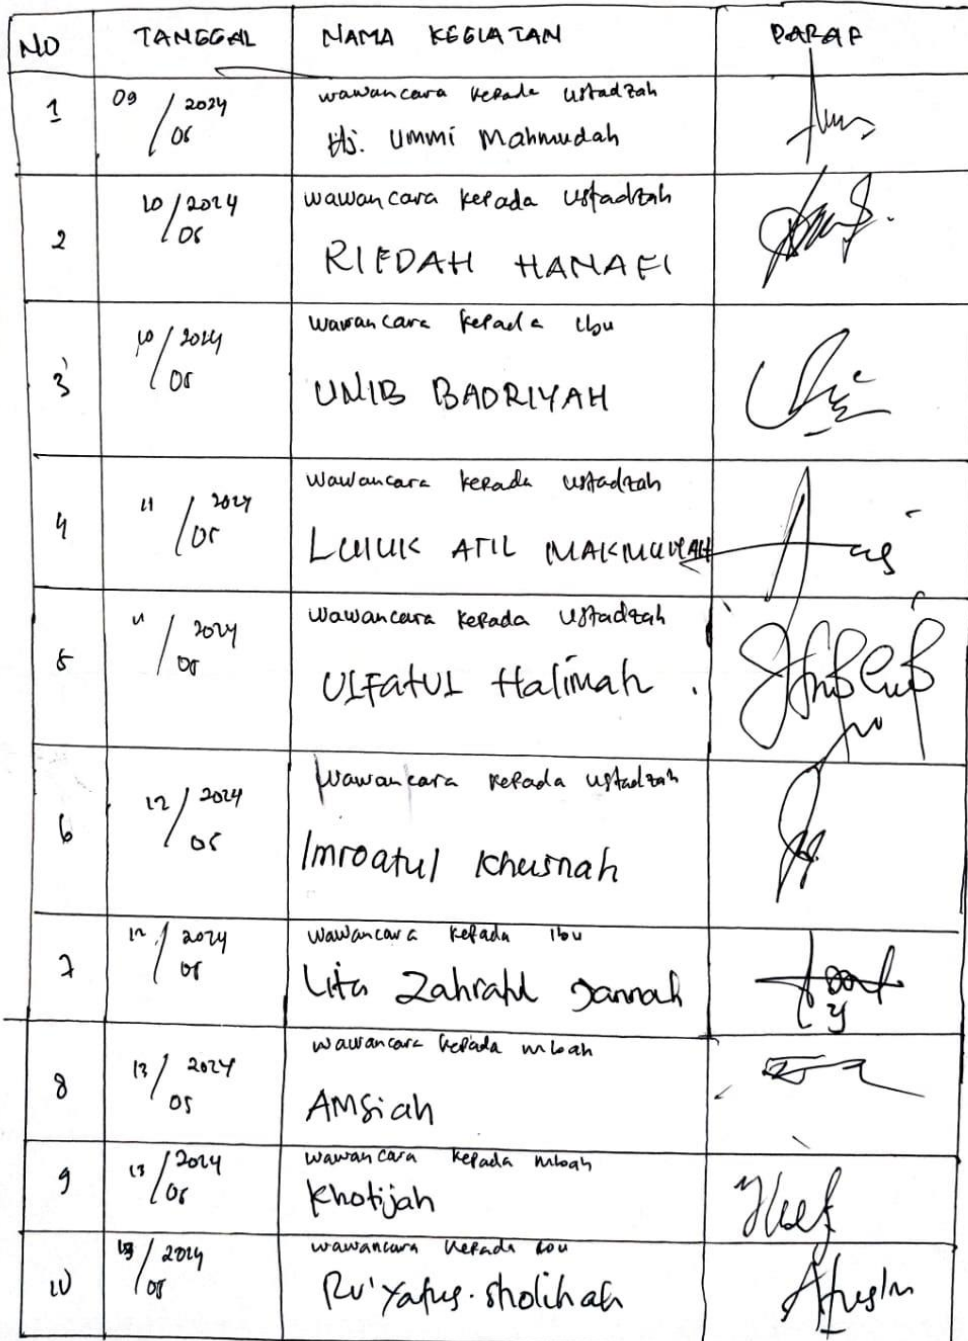 NO TANGGAL NAMA KEGIATAN PARAF
1 09/05 2024 wawancara kepada ustadzah
Hj. Ummi Mahmudah
2 10/05 2024 wawancara kepada ustadzah
RIFDAH HANAFI
3 10/05 2024 wawancara kepada ibu
UNIB BADRIYAH
4 11/05 2024 wawancara kepada ustadzah
LULUK ATIL MAKMULAH
5 11/05 2024 wawancara kepada ustadzah
ULFATUL Halimah
6 12/05 2024 wawancara kepada ustadzah
Imroatul Khusnah
7 12/05 2024 wawancara kepada ibu
Lita Zahratul Jannah
8 13/05 2024 wawancara kepada mbah
AMSiah
9 13/05 2024 wawancara kepada mbah
Khotijah
10 13/05 2024 wawancara kepada ibu
Ru'yatus sholihah